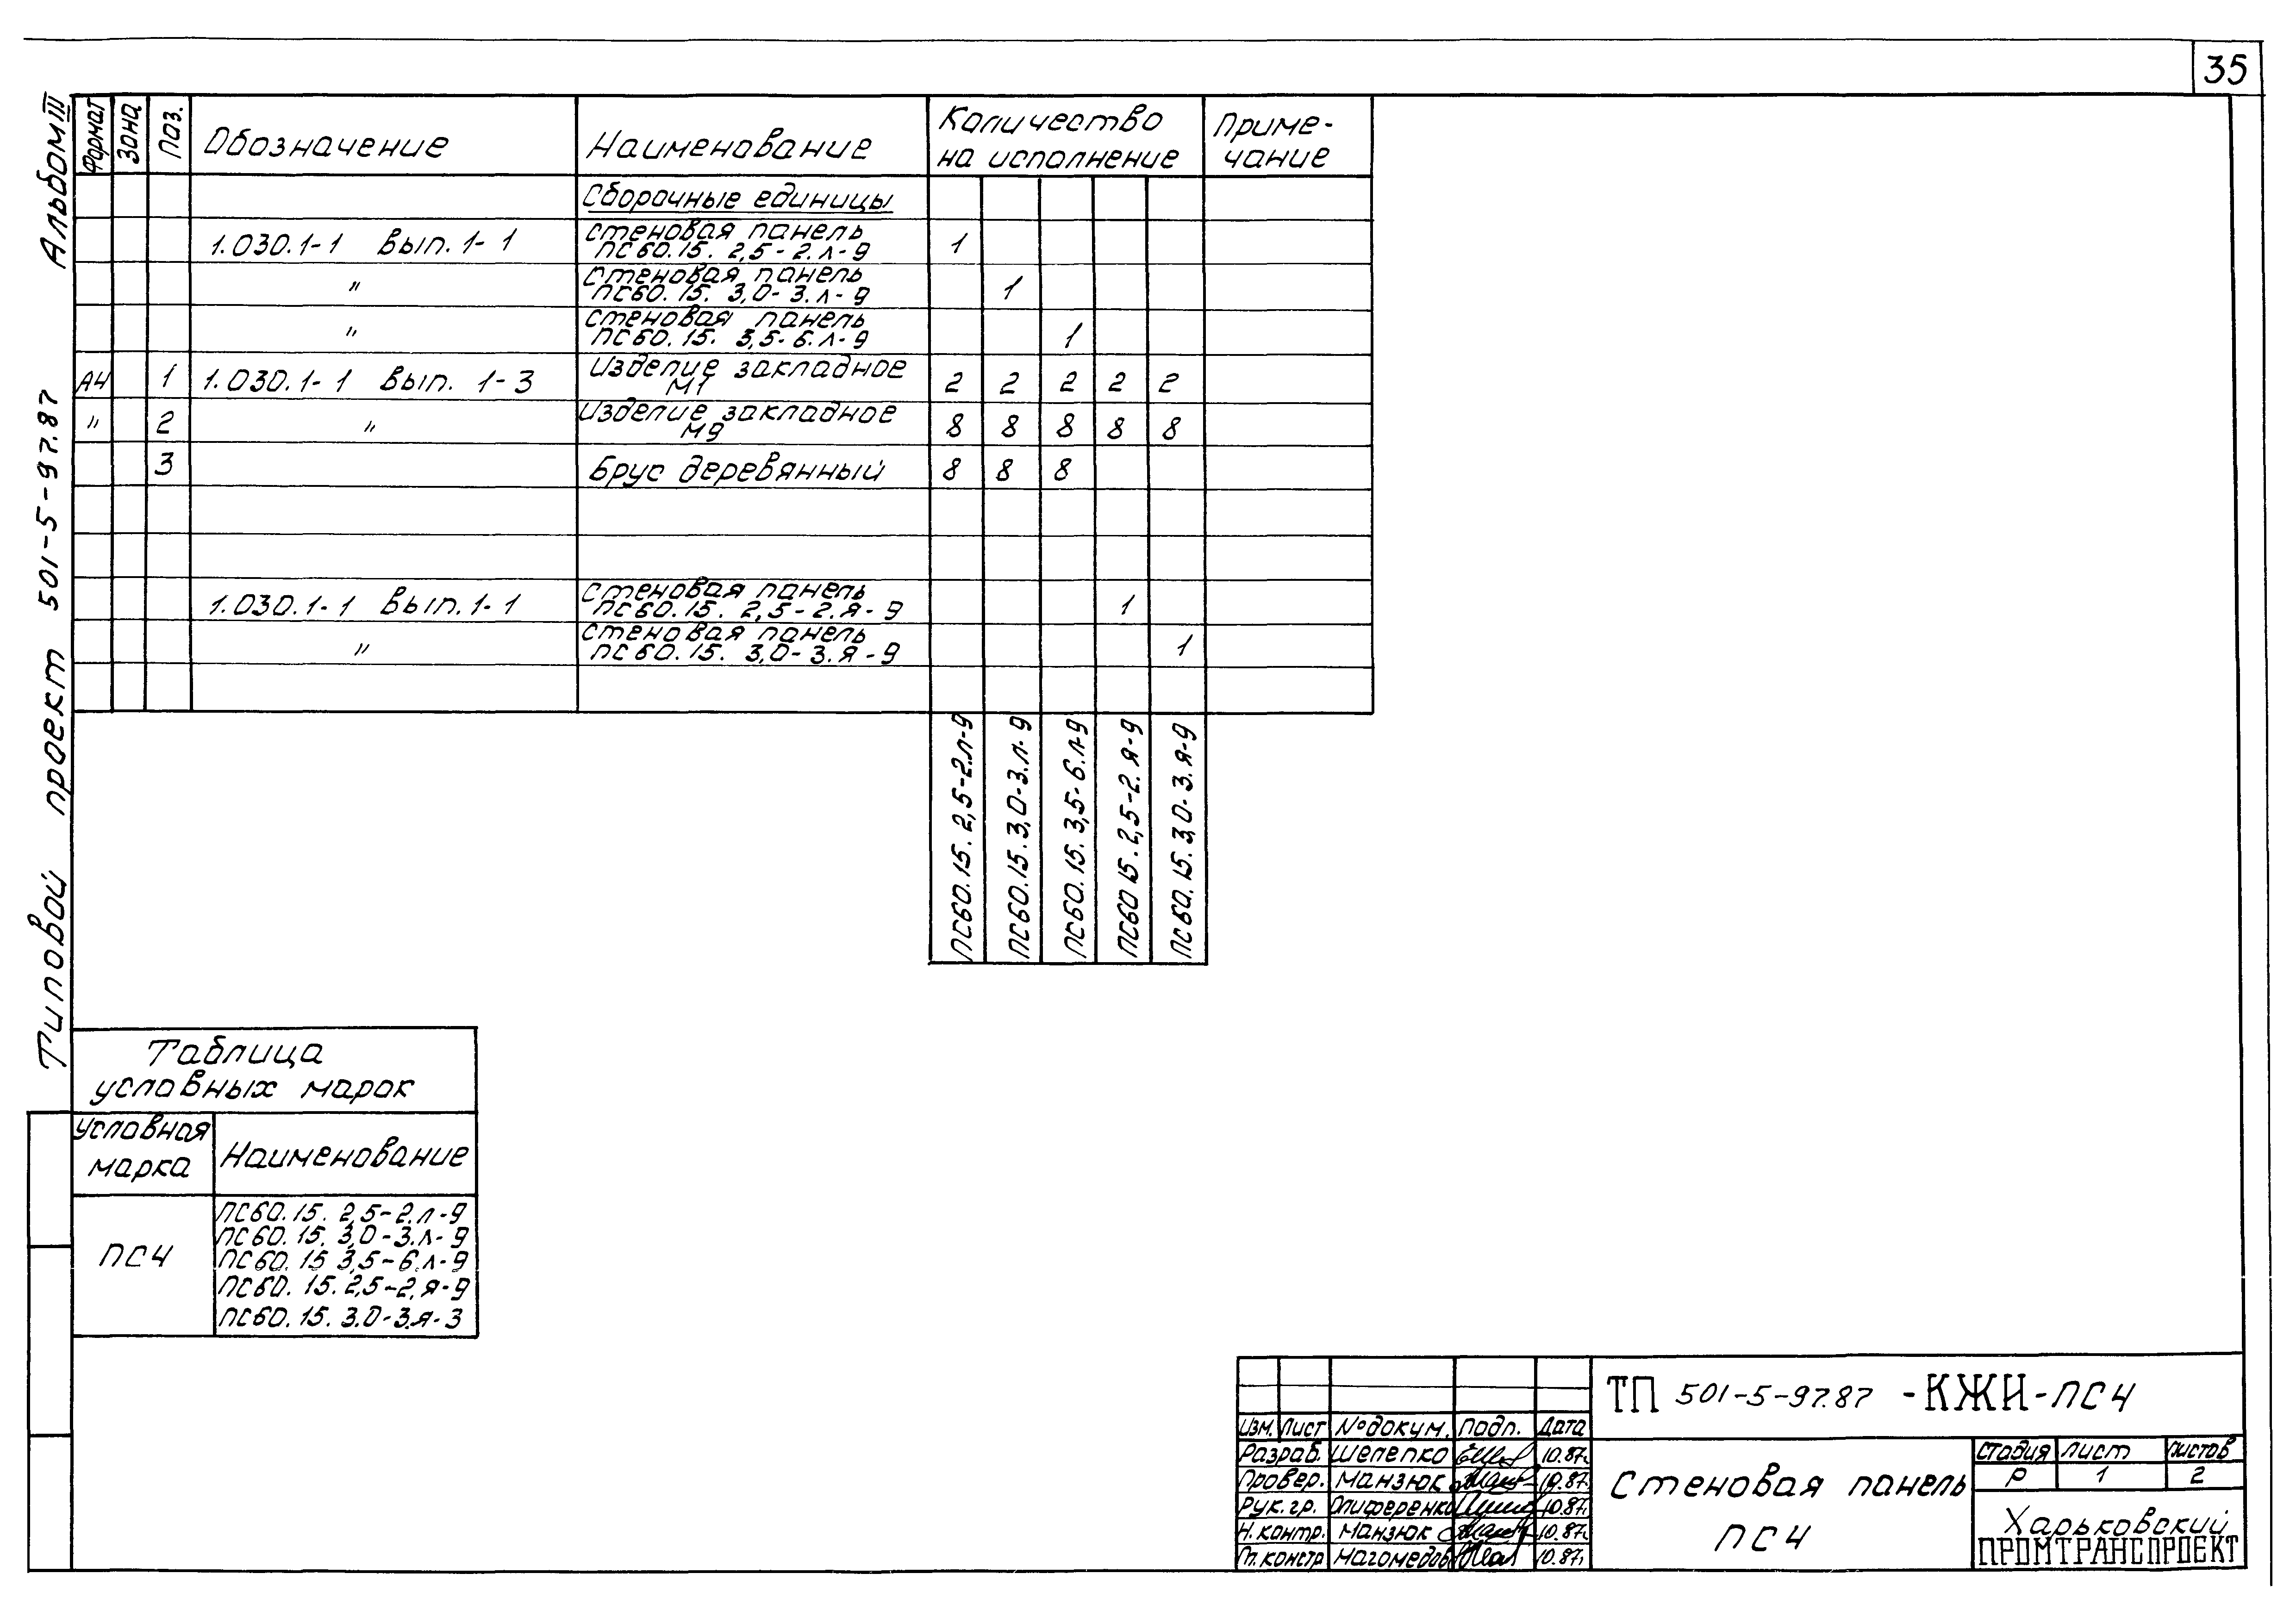 35
Альбом III
Типовой проект 501-5-97.87
Формат Зона Поз. Обозначение Наименование Количество на исполнение Приме-чание
Сборочные единицы
1.030.1-1 Вып. 1-1 стеновая панель ПС60.15. 2,5-2.л-9 1
" Стеновая панель ПС60.15. 3,0-3.л-9 1
" стеновая панель ПС60.15. 3,5-6.л-9 1
А4 1 1.030.1-1 Вып. 1-3 Изделие закладное М1 2 2 2 2 2
" 2 " Изделие закладное М9 8 8 8 8 8
3 Брус деревянный 8 8 8
1.030.1-1 Вып. 1-1 Стеновая панель ПС60.15. 2,5-2.я-9 1
" Стеновая панель ПС60.15. 3,0-3.я-9 1
ПС60.15. 2,5-2.л-9
ПС60.15. 3,0-3.л-9
ПС60.15. 3,5-6.л-9
ПС60 15. 2,5-2.я-9
ПС60.15. 3,0-3.я-9
Таблица
условных марок
Условная марка Наименование
ПС4
ПС60.15. 2,5-2.л-9
ПС60.15. 3,0-3.л-9
ПС60.15 3,5-6.л-9
ПС60.15. 2,5-2.я-9
ПС60.15. 3.0-3.я-3
ТП 501-5-97.87 -КЖИ-ПС4
Изм. Лист № докум. Подп. Дата
Разраб. Шепепко 10.87г.
Провер. Манзюк 10.87г.
Рук. гр. Олиференко 10.87г.
Н. контр. Манзюк 10.87г.
Гл. констр Магомедов 10.87г.
Стеновая панель
ПС4
стадия лист листов
Р 1 2
Харьковский
ПРОМТРАНСПРОЕКТ